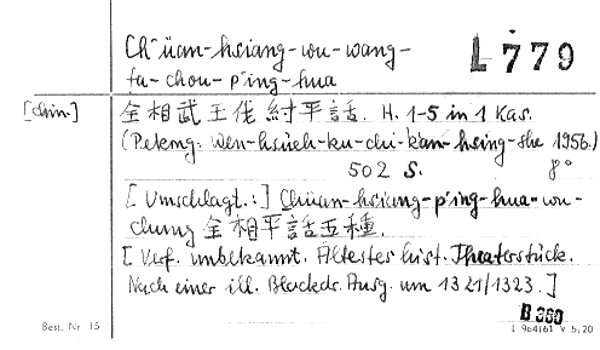 Ch'üan-hsiang-wu-wang-
L 779
fa-chou-p'ing-hua
[chin.]
全相武王伐紂平話. H. 1-5 in 1 Kas.
(Peking: Wen-hsüeh-ku-chi-k'an-hsing-she 1956.)
502 S. 8°
[Umschlagt.:] Chüan-hsiang-p'ing-hua-wu-
chung 全相平話五種.
[Verf. unbekannt. Ältestes hist. Theaterstück.
Nach einer ill. Blockdr. Ausg. um 1321/1323.]
B 360
Best. Nr 15
L 964/61 V 5,20